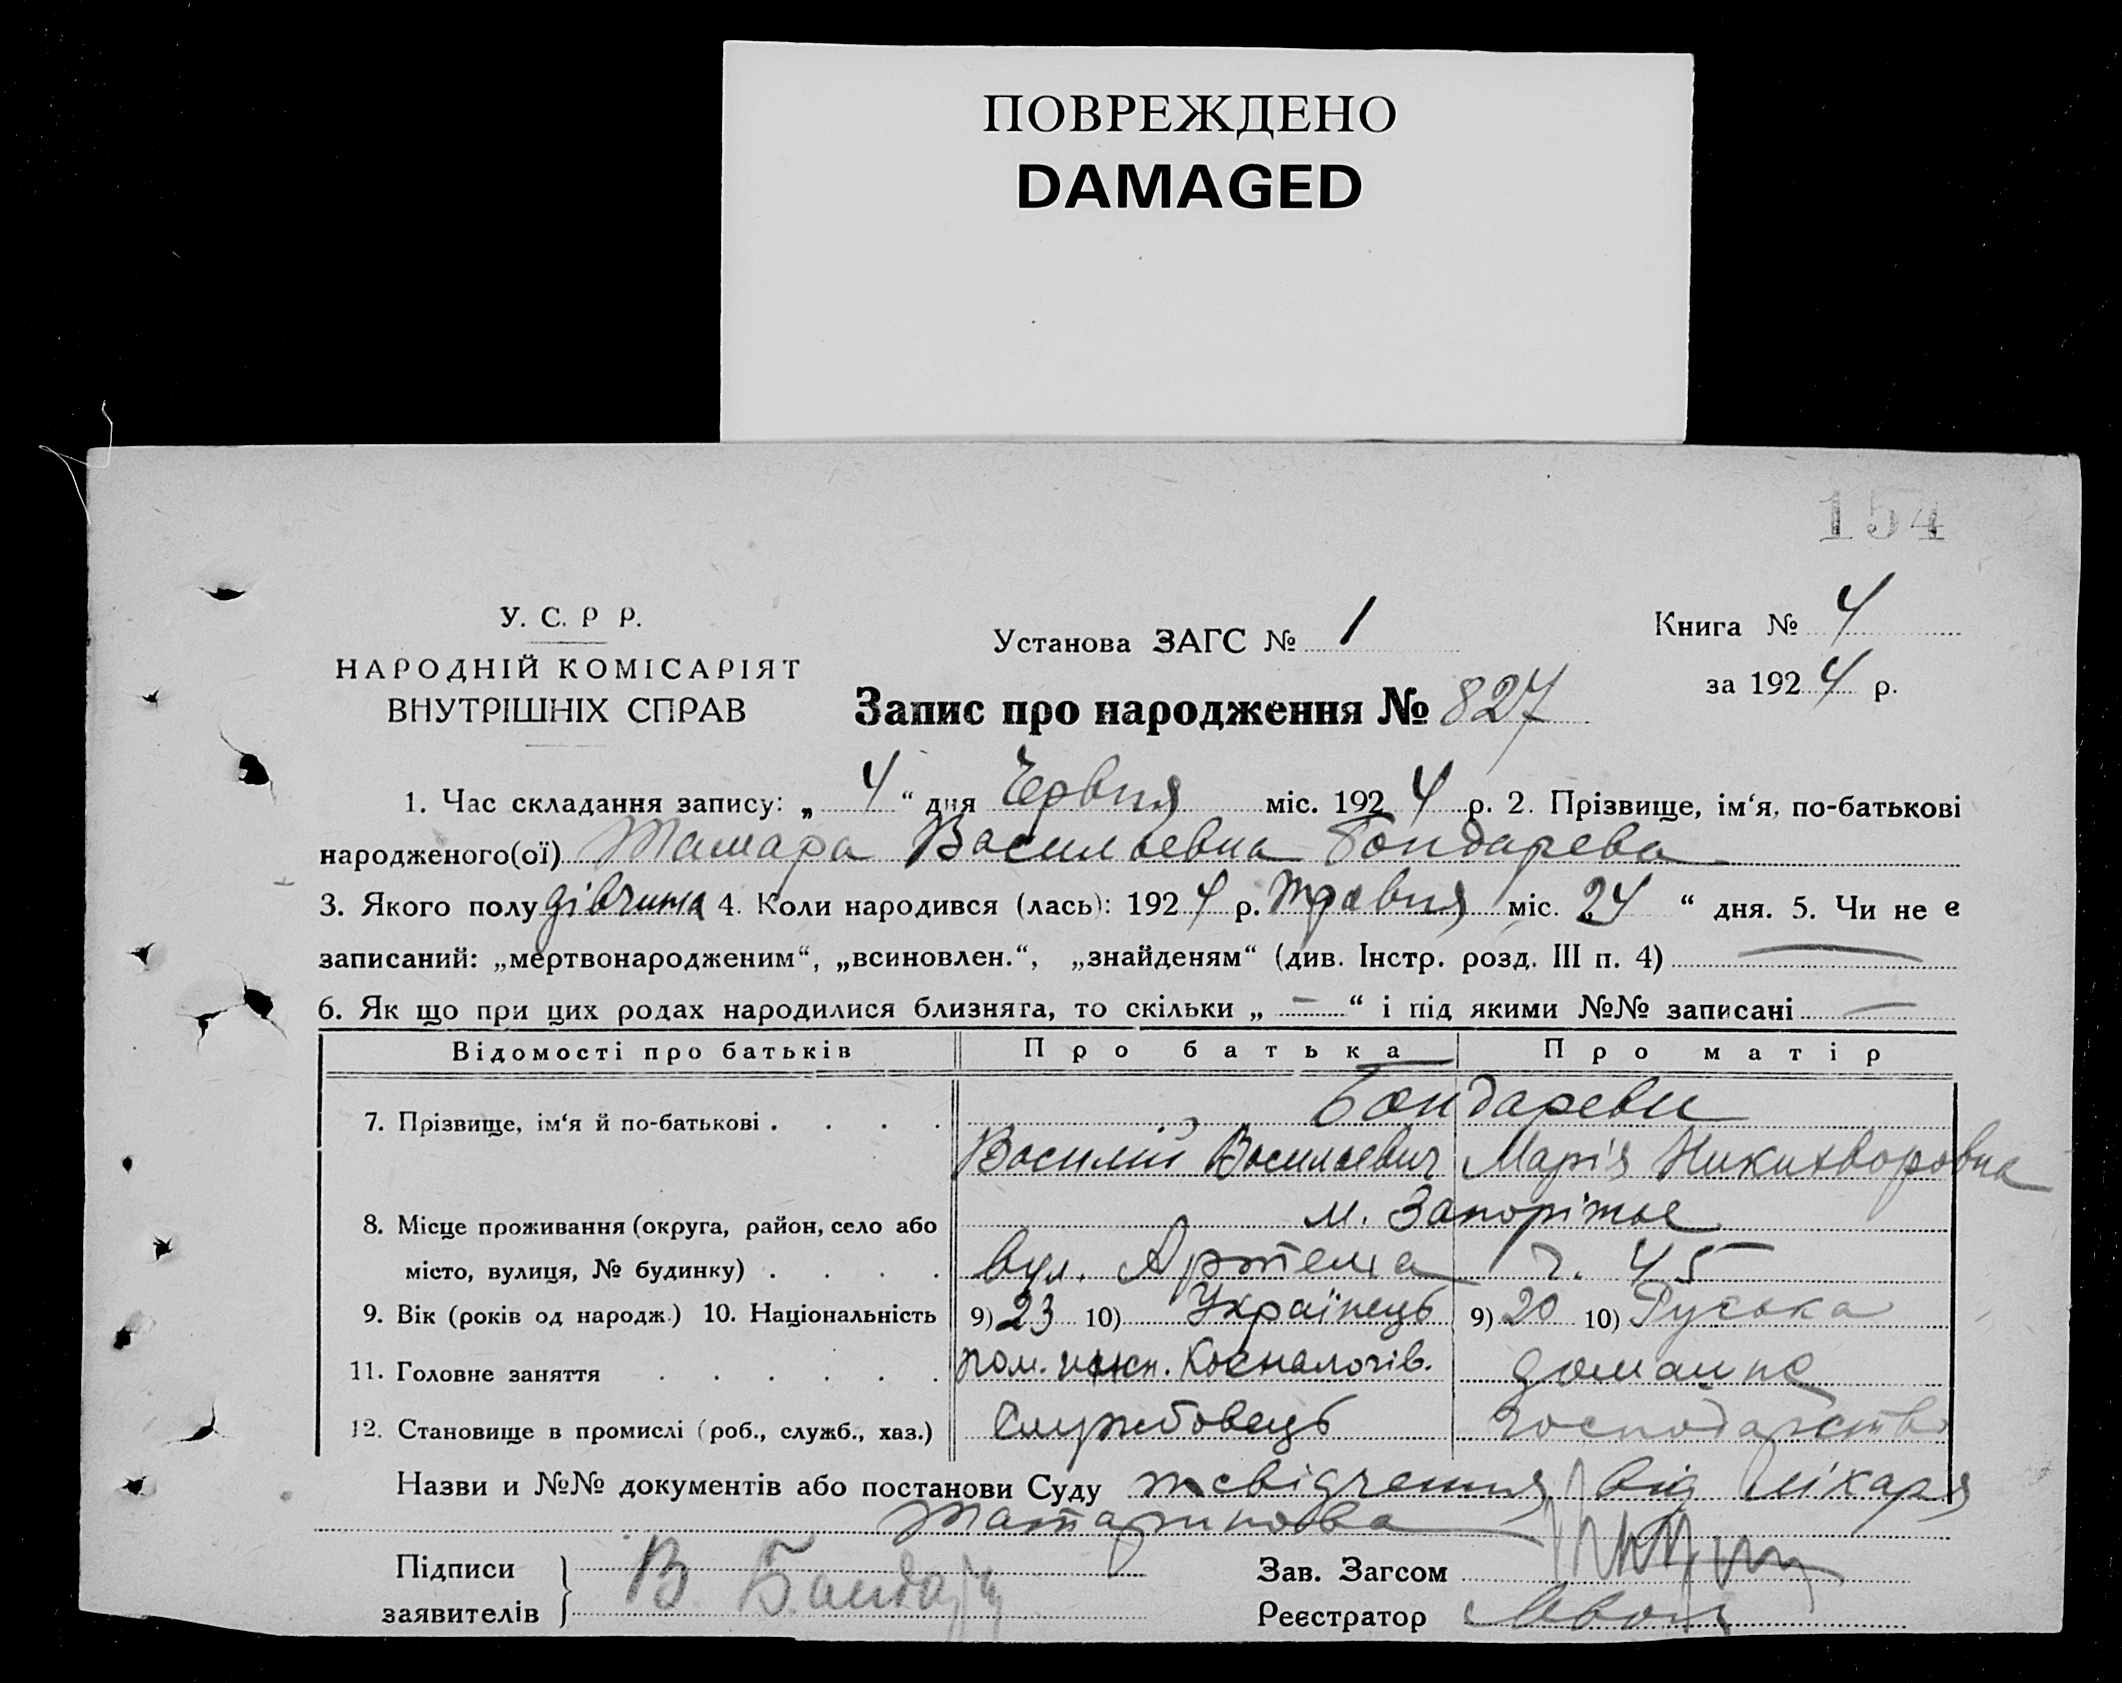 ПОВРЕЖДЕНО
DAMAGED
154
У. С. Р Р.
НАРОДНІЙ КОМІСАРІЯТ
ВНУТРІШНІХ СПРАВ
Установа ЗАГС № 1
Книга № 4
за 1924 р.
Запис про народження № 827
1. Час складання запису: „ 4 “ дня Червня міс. 1924 р. 2. Прізвище, ім‘я, по-батькові
народженого(ої) Тамара Васильевна Бондарева
3. Якого полу дівчина 4. Коли народився (лась): 1924 р. Травня міс. 24 “ дня. 5. Чи не є
записаний: „мертвонародженим“, „всиновлен.“, „знайденям“ (див. Інстр. розд. III п. 4) —
6. Як що при цих родах народилися близнята, то скільки „ — “ і під якими №№ записані —
Відомості про батьків Про батька Про матір
7. Прізвище, ім‘я й по-батькові . . . . Бондареви
Василій Васильевич Марія Никихворовна
8. Місце проживання (округа, район, село або м. Запоріжье
місто, вулиця, № будинку) . . . . вул. Артема ч. 45
9. Вік (років од народж.) 10. Національність 9) 23 10) Українець 9) 20 10) Руська
11. Головне заняття . . . . . . пом. домашнє
12. Становище в промислі (роб., служб., хаз.) Службовець господарство
Назви и №№ документів або постанови Суду від лікаря
Татаринова
Підписи
заявителів В. Бондар
Зав. Загсом
Реєстратор